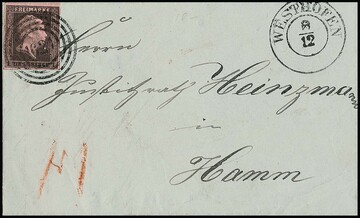 FREIMARKE
WESTHOFEN
8
12
Herrn
Justitzrath Heinzmann
in
Hamm